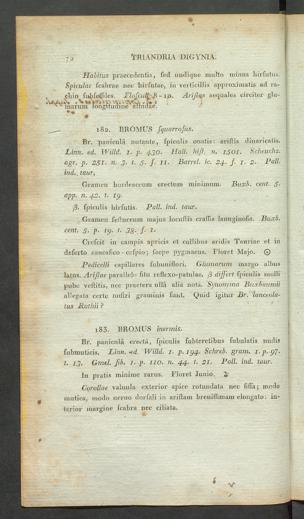 72 TRIANDRIA DIGYNIA.
Habitus praecedentis, sed undique multo minus hirsutus.
Spiculae scabrae nec hirsutae, in verticillis approximatis ad ra-
chin subsessiles. Flosculi 8-10. Aristae aequales circiter glu-
marum longitudine
182. BROMUS squarrosus.
Br. paniculâ nutante, spiculis ovatis: aristis divaricatis.
Linn. ed. Willd. 1. p. 430. Hall. hist. n. 1501. Scheuchz.
agr. p. 251. n. 3. t. 5. f. 11. Barrel. ic. 24. f. 1. 2. Pall.
ind. taur.
Gramen hordeaceum erectum minimum. Buxb. cent. 5.
app. n. 42. t. 19.
β. spiculis hirsutis. Pall. ind. taur.
Gramen festuceum majus locustis crassis lanuginosis. Buxb.
cent. 5. p. 19. t. 38. f. 1.
Crescit in campis apricis et collibus aridis Tauriae et in
deserto caucasico-caspio; saepe pygmaeus. Floret Majo. ⊙
Pedicelli capillares subuniflori. Glumarum margo albus
latus. Aristae paralleló situ reflexo-patulae. β differt spiculis molli
pube vestitis, nec praeterea ullâ aliâ notâ. Synonyma Buxbaumii
allegata certe nostri graminis sunt. Quid igitur Br. lanceola-
tus Rothii?
183. BROMUS inermis.
Br. paniculâ erectâ, spiculis subteretibus subulatis nudis
submuticis. Linn. ed. Willd. 1. p. 194. Schreb. gram. 1. p. 97.
t. 13. Gmel. sib. 1. p. 110. n. 44. t. 21. Pall. ind. taur.
In pratis minime rarus. Floret Junio. ♃
Corollae valvula exterior apice rotundata nec fissa; modo
mutica, modo nervo dorsali in aristam brevissimam elongato: in-
terior margine scabra nec ciliata.